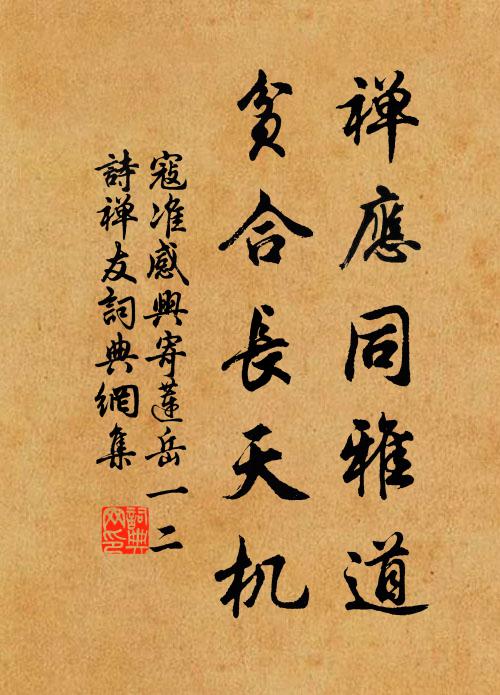 禅應同雅道
貧合長天机
寇准感興寄蓮岳一二
詩禅友詞典網集
詞典